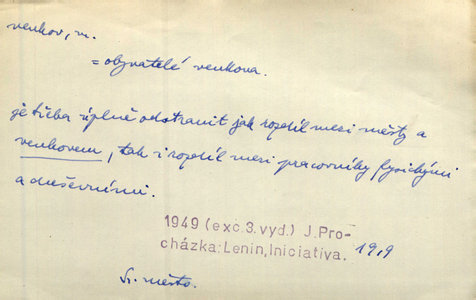 venkov, m.
= obyvatelé venkova.
je třeba úplně odstranit jak rozdíl mezi městy a
venkovem, tak i rozdíl mezi pracovníky fysickými
a duševními.
1949 (exc. 3. vyd.) J. Pro-
cházka: Lenin, Iniciativa. 19,9
Sr. město.